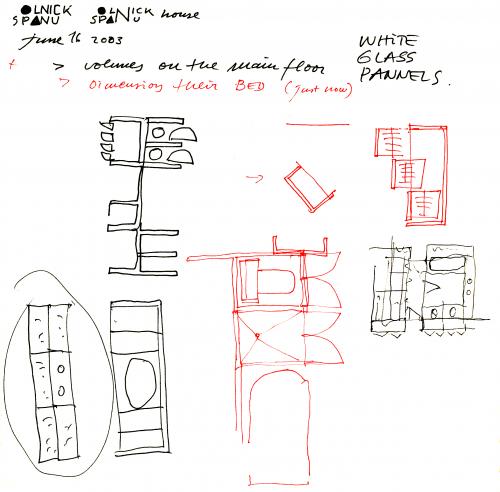 OLNICK OLNICK house
SPANU SPANU
June 16 2003
+ > volumes on the main floor
> Dimension their BED (just now)
WHITE
GLASS
PANNELS.